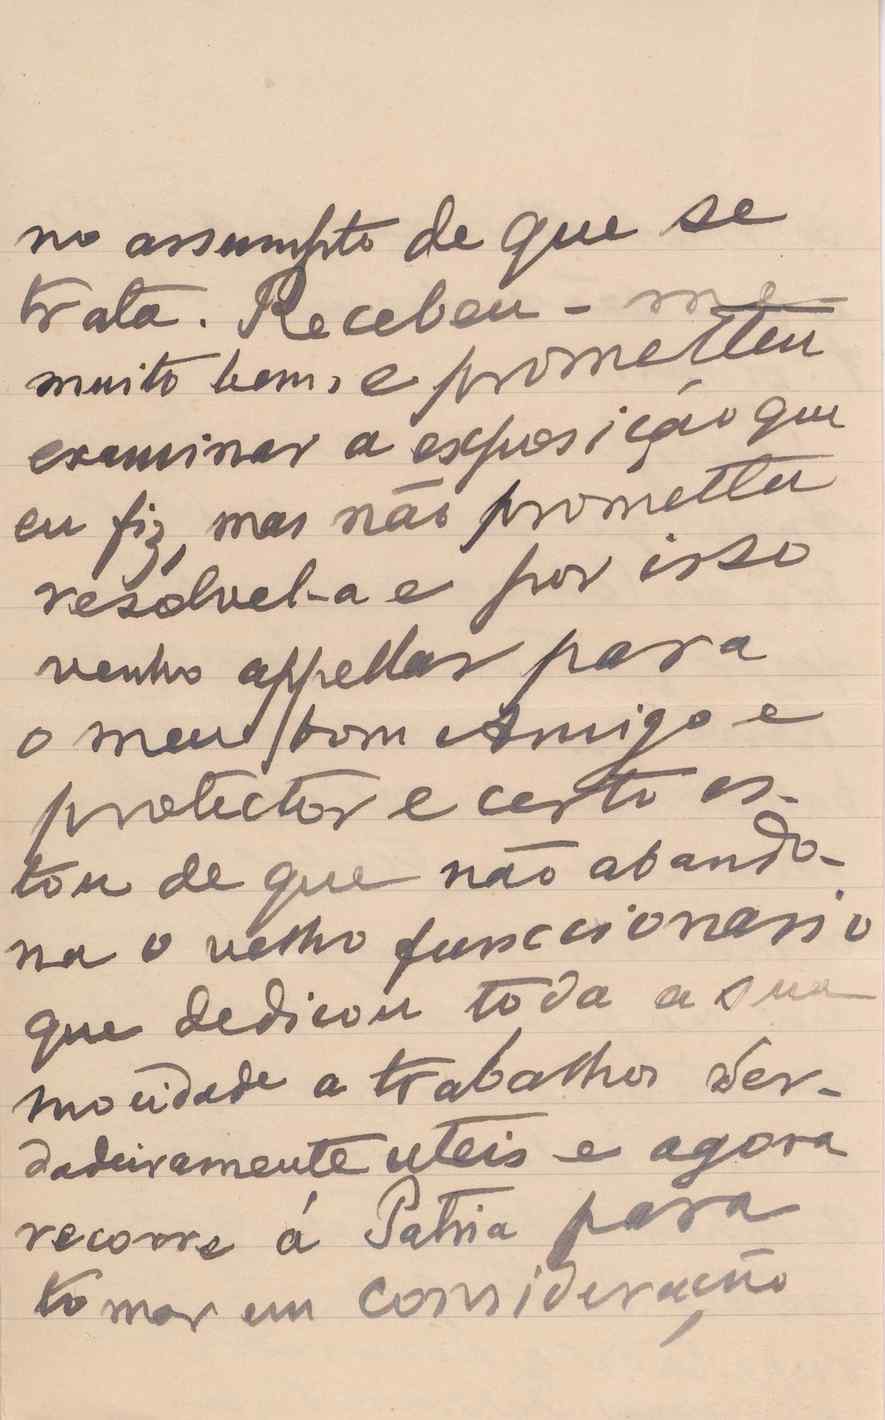 no assumpto de que se
trata. Recebeu-me
muito bem, e prometteu
examinar a exposição que
eu fiz, mas não prometteu
resolvel-a e por isso
venho appellar para
o meu bom Amigo e
protector e certo es-
tou de que não abando-
na o velho funccionario
que dedicou toda a sua
mocidade a trabalhos ver-
dadeiramente uteis e agora
recorre á Patria para
tomar em consideração